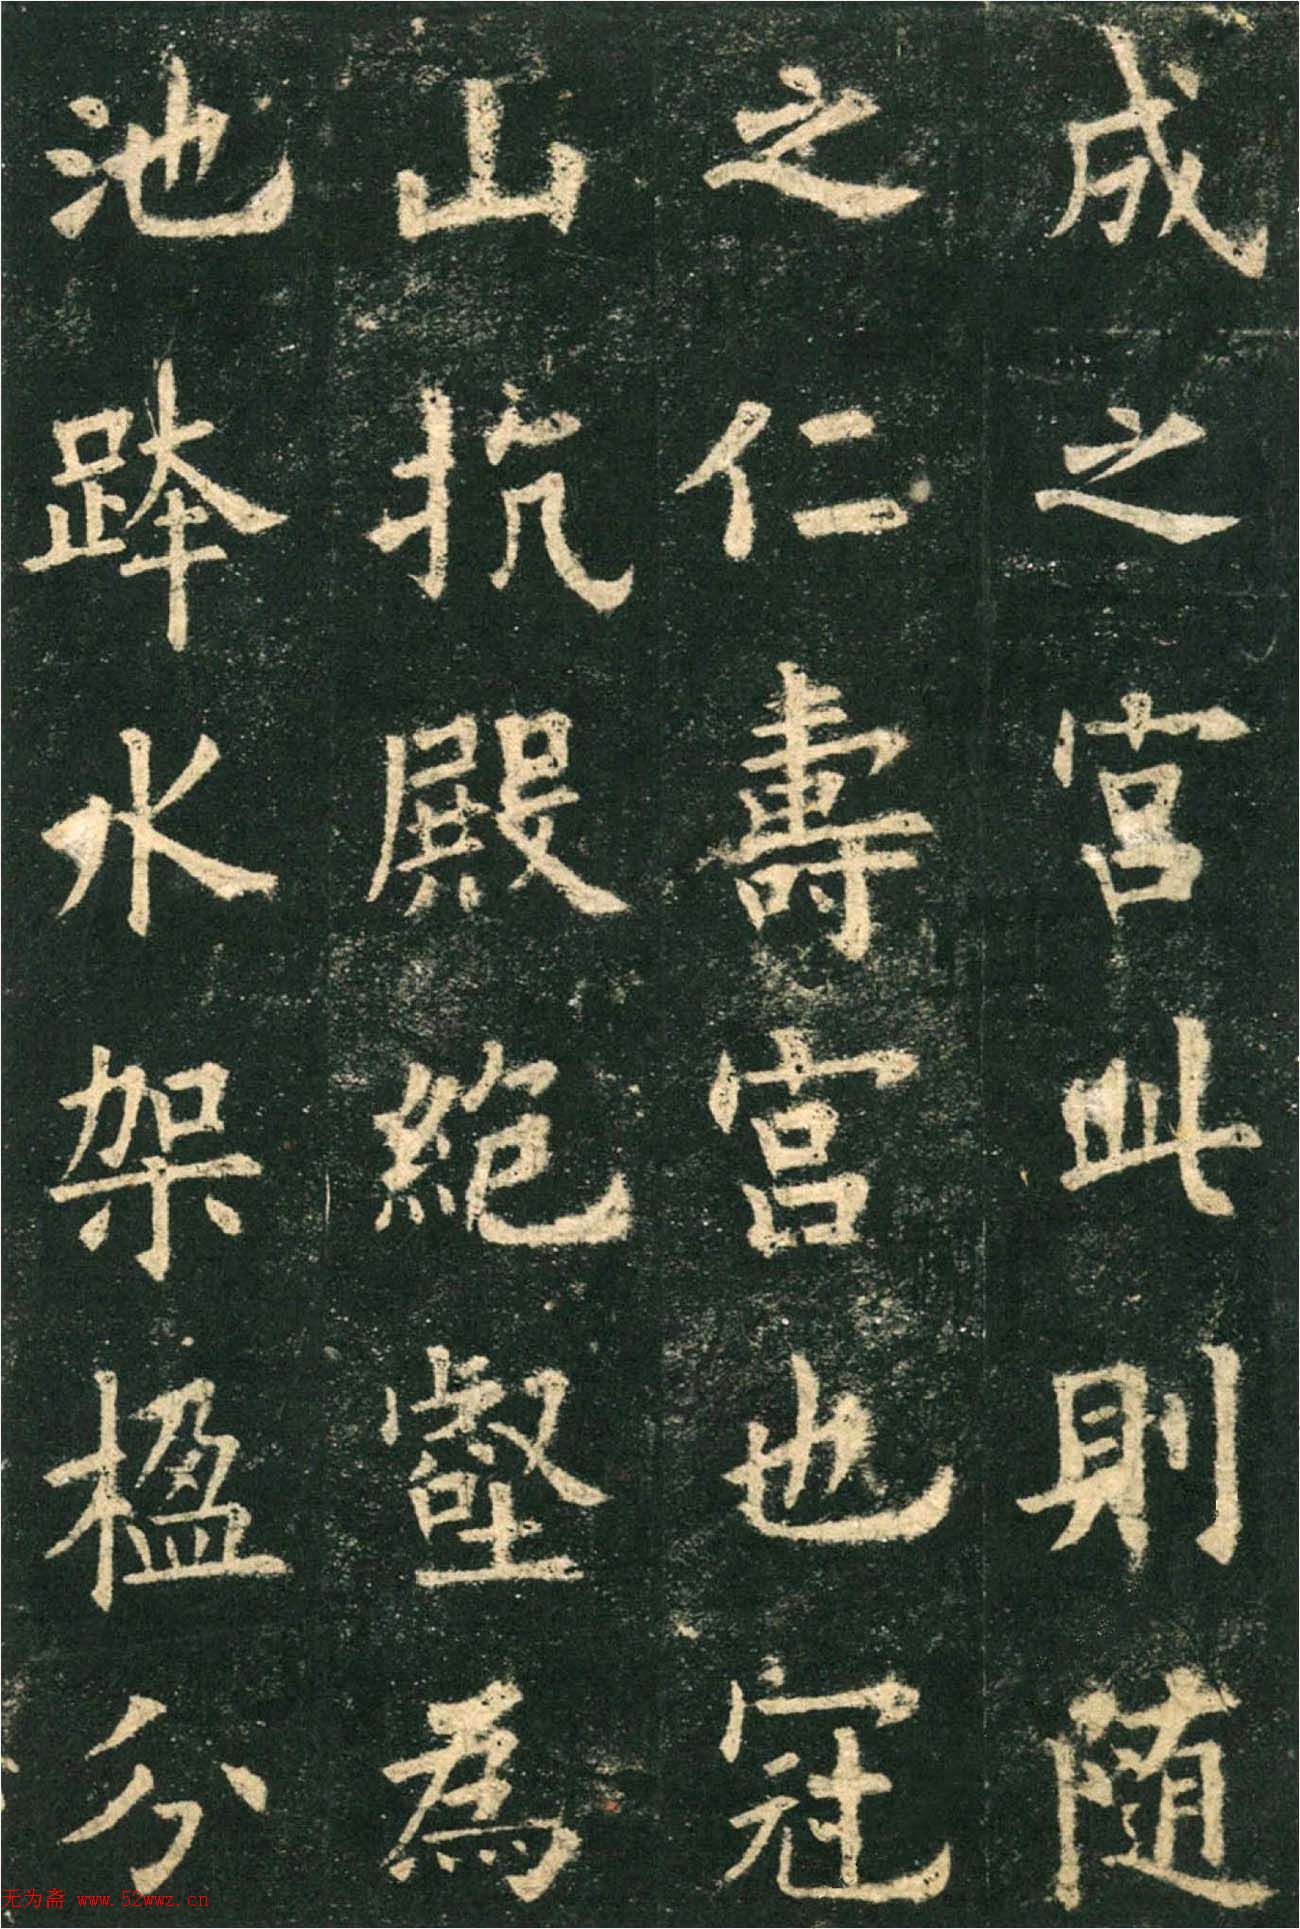 成之宮此則隨
之仁壽宮也冠
山抗殿絕壑為
池跨水架楹分
无为斋 www.52wwz.cn